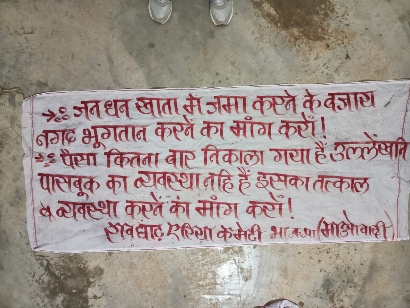 जन धन खाता में जमा करने के वजाय
नगद भूगतान करने का मांग करो!
पैसा कितना बार निकाला गया है उल्लेखनि
पासबुक का व्यवस्था नहि है इसका तत्काल
व व्यवस्था करने कां मांग करो!
रावघाट एरिया कमेटी भा.क.पा (माओवादी)